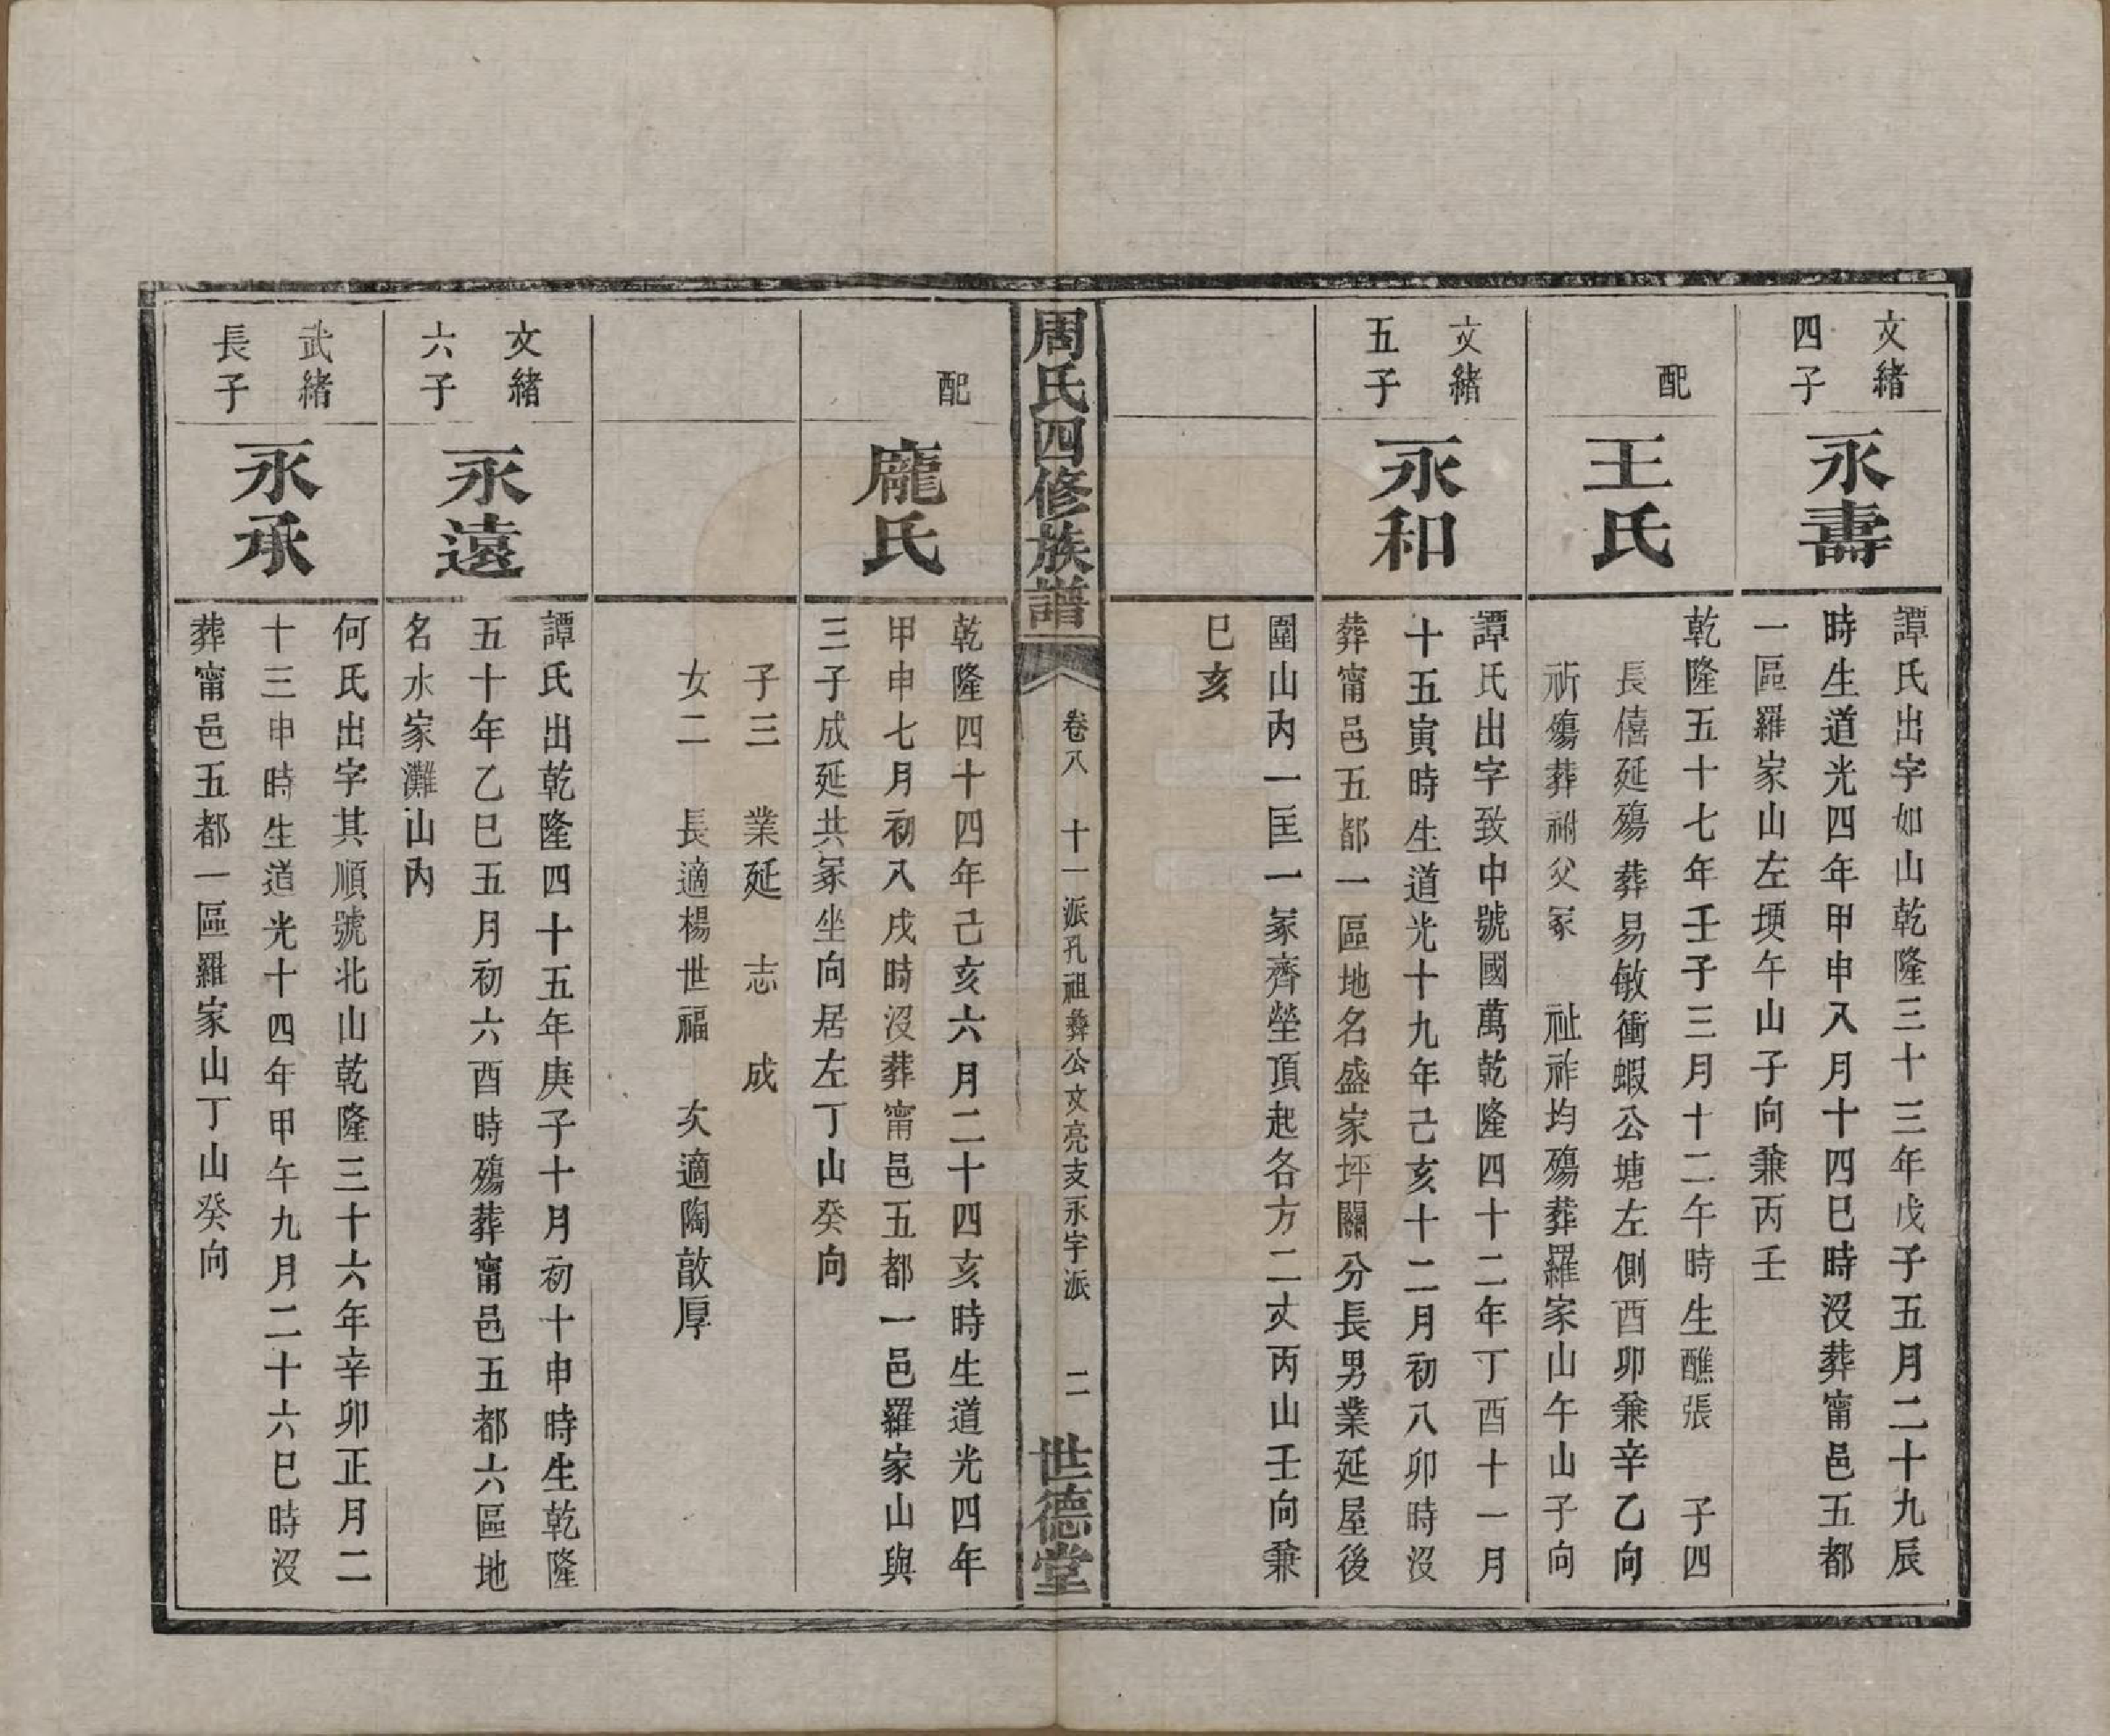 文緒
四子
永壽
譚氏出字如山乾隆三十三年戊子五月二十九辰
時生道光四年甲申八月十四巳時沒葬甯邑五都
一區羅家山左堧午山子向兼丙壬
配
王氏
乾隆五十七年壬子三月十二午時生醮張　子四
長僖延殤葬易敏衝蝦公塘左側酉卯兼辛乙向
祈殤葬祔父冢　祉祚均殤葬羅家山午山子向
文緒
五子
永和
譚氏出字致中號國萬乾隆四十二年丁酉十一月
十五寅時生道光十九年己亥十二月初八卯時沒
葬甯邑五都一區地名盛家坪關分長男業延屋後
圍山內一匡一冢齊塋頂起各方二丈丙山壬向兼
巳亥
周氏四修族譜
卷八　十一派孔祖彝公文亮支永字派　二
世德堂
配
龐氏
乾隆四十四年己亥六月二十四亥時生道光四年
甲申七月初八戌時沒葬甯邑五都一邑羅家山與
三子成延共冢坐向居左丁山癸向
子三　業延　志　成
女二　長適楊世福　次適陶敔厚
文緒
六子
永遠
譚氏出乾隆四十五年庚子十月初十申時生乾隆
五十年乙巳五月初六酉時殤葬甯邑五都六區地
名水家灘山內
武緒
長子
永承
何氏出字其順號北山乾隆三十六年辛卯正月二
十三申時生道光十四年甲午九月二十六巳時沒
葬甯邑五都一區羅家山丁山癸向